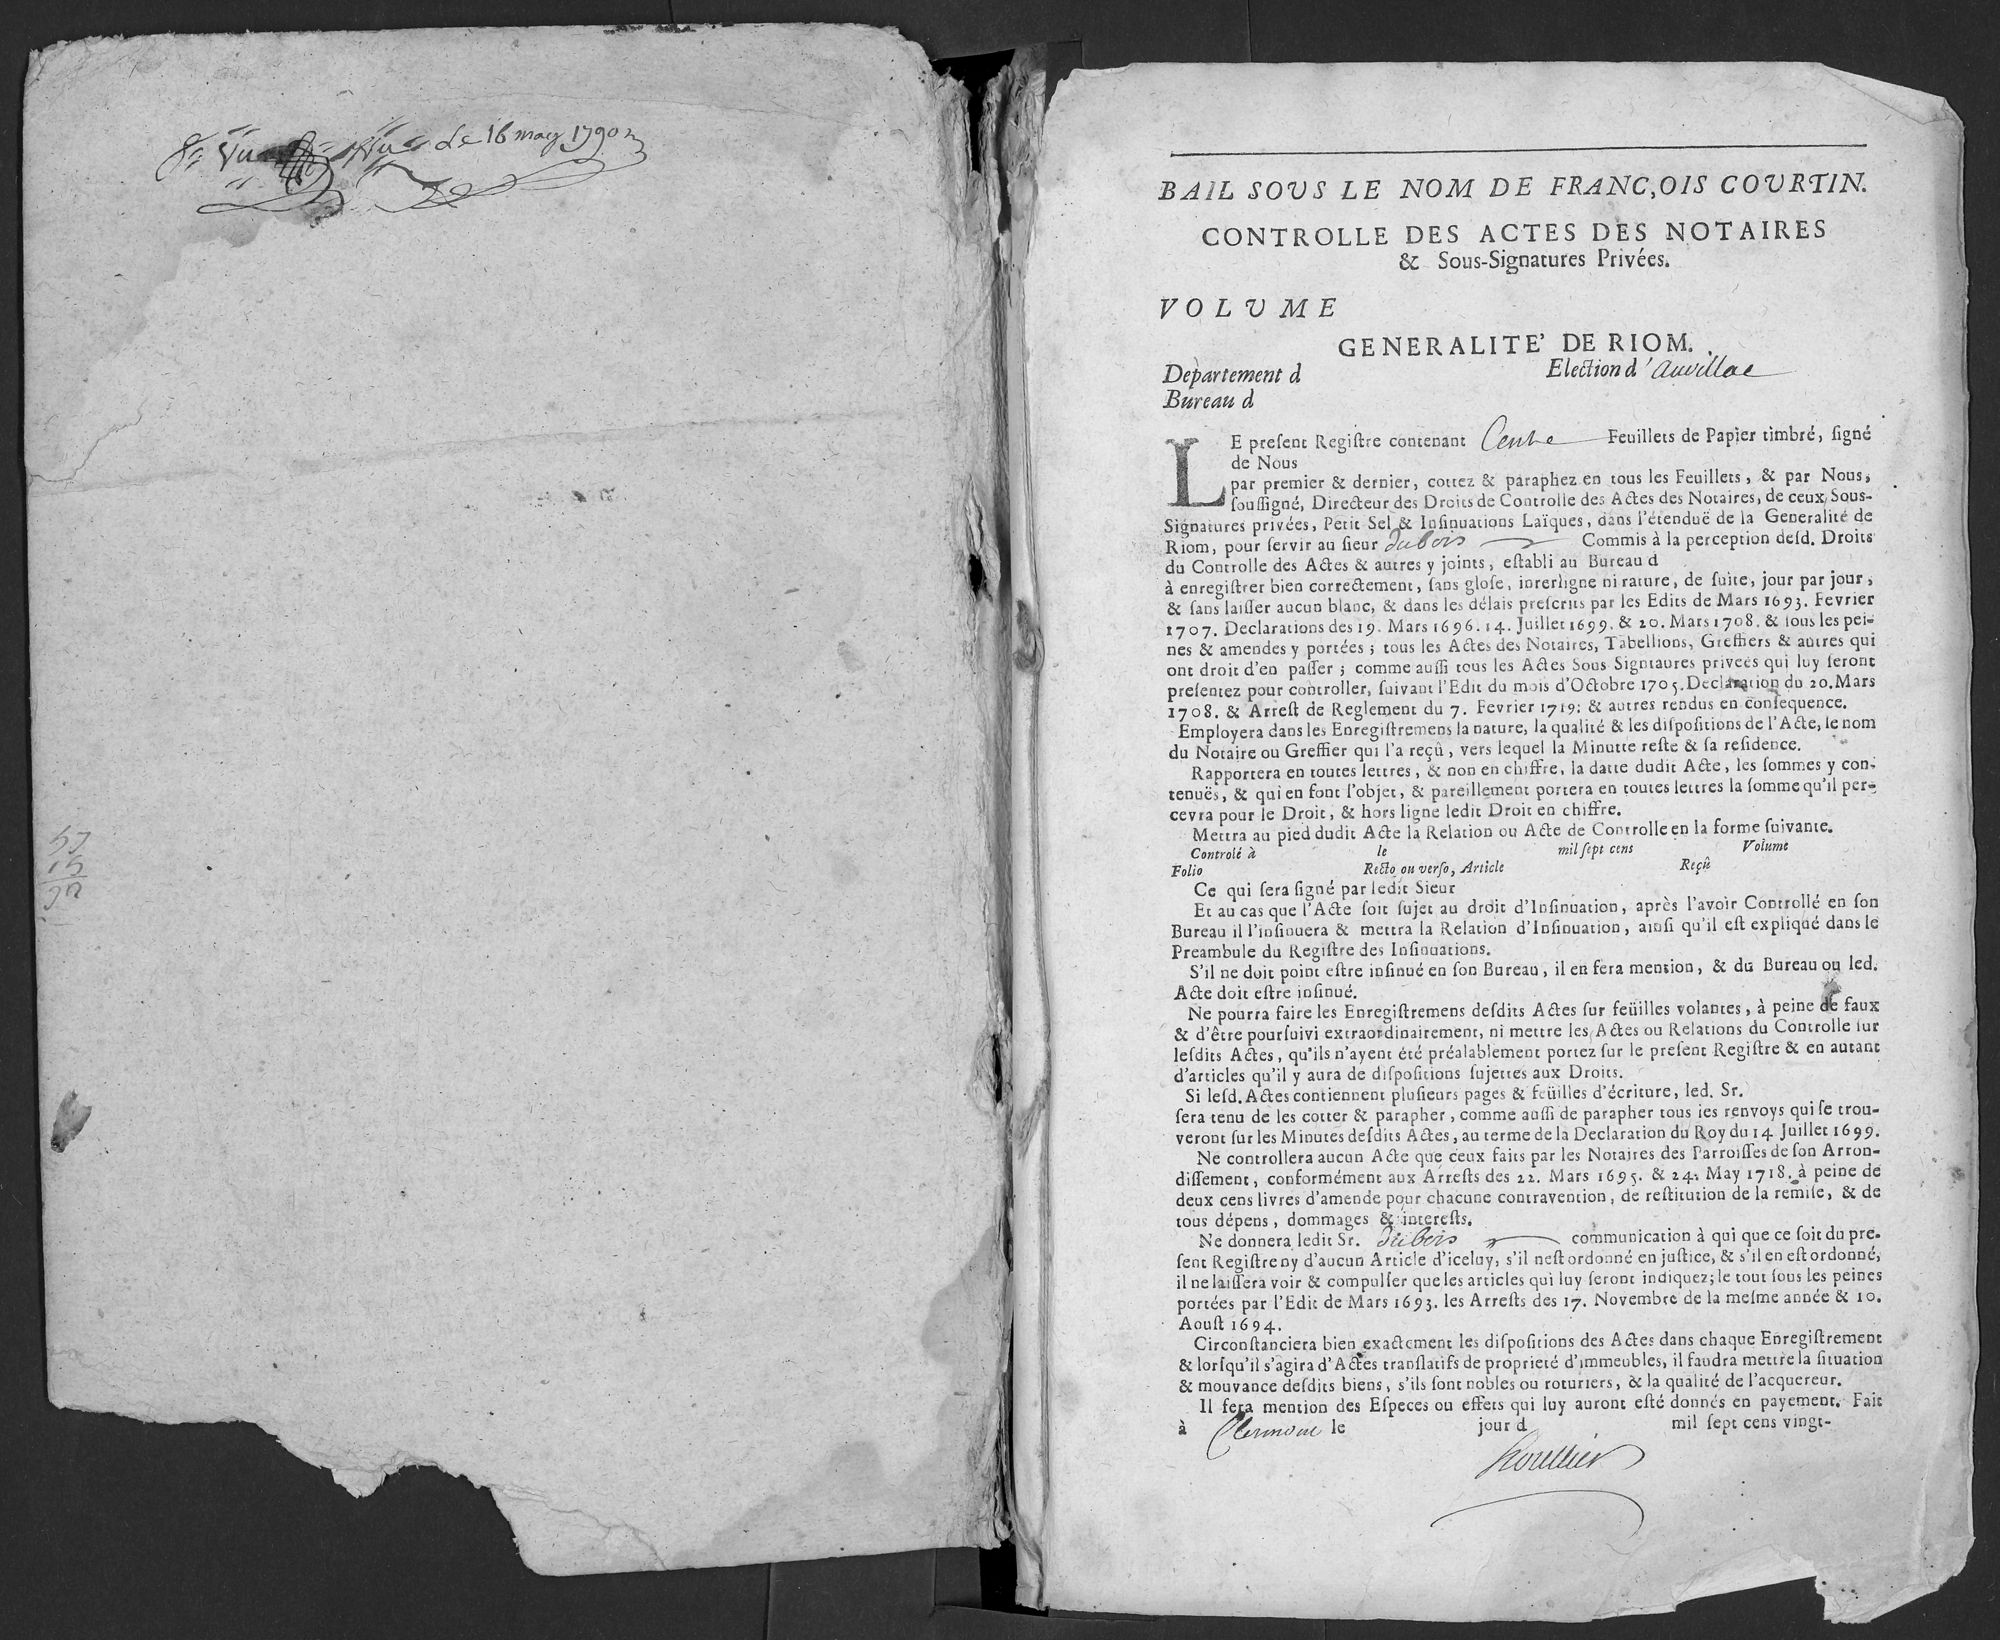 Vu
Vu de 16 may 1790
57
15
BAIL SOUS LE NOM DE FRANC,OIS COURTIN.
CONTROLLE DES ACTES DES NOTAIRES
& Sous-Signatures Privées.
VOLUME
GENERALITE' DE RIOM.
Departement d Election d'Auvillac
Bureau d
LE preſent Regiſtre contenant Feuillets de Papier timbré, ſigné
de Nous
par premier & dernier, cottez & paraphez en tous les Feuillets, & par Nous,
ſouſſigné, Directeur des Droits de Controlle des Actes des Notaires, de ceux Sous-
Signatures privées, Petit Sel & Inſinuations Laïques, dans l'étenduë de la Generalité de
Riom, pour ſervir au ſieur dubois Commis à la perception deſd. Droits
du Controlle des Actes & autres y joints, eſtabli au Bureau d
à enregiſtrer bien correctement, ſans gloſe, interligne ni rature, de ſuite, jour par jour,
& ſans laiſſer aucun blanc, & dans les délais preſcrits par les Edits de Mars 1693. Fevrier
1707. Declarations des 19. Mars 1696. 14. Juillet 1699. & 20. Mars 1708. & ſous les pei-
nes & amendes y portées; tous les Actes des Notaires, Tabellions, Greffiers & autres qui
ont droit d'en paſſer; comme auſſi tous les Actes Sous Signtaures privées qui luy ſeront
preſentez pour controller, ſuivant l'Edit du mois d'Octobre 1705. Declaration du 20. Mars
1708. & Arreſt de Reglement du 7. Fevrier 1719: & autres rendus en conſequence.
Employera dans les Enregiſtremens la nature, la qualité & les diſpoſitions de l'Acte, le nom
du Notaire ou Greffier qui l'a reçû, vers lequel la Minutte reſte & ſa reſidence.
Rapportera en toutes lettres, & non en chiffre, la datte dudit Acte, les ſommes y con-
tenuës, & qui en font l'objet, & pareillement portera en toutes lettres la ſomme qu'il per-
cevra pour le Droit, & hors ligne ledit Droit en chiffre.
Mettra au pied dudit Acte la Relation ou Acte de Controlle en la forme ſuivante.
Controlé à le mil ſept cens Volume
Folio Recto ou verſo, Article Reçû
Ce qui ſera ſigné par ledit Sieur
Et au cas que l'Acte ſoit ſujet au droit d'Inſinuation, après l'avoir Controllé en ſon
Bureau il l'inſinuera & mettra la Relation d'Inſinuation, ainſi qu'il eſt expliqué dans le
Preambule du Regiſtre des Inſinuations.
S'il ne doit point eſtre inſinué en ſon Bureau, il en fera mention, & du Bureau ou led.
Acte doit eſtre inſinué.
Ne pourra faire les Enregiſtremens deſdits Actes ſur feüilles volantes, à peine de faux
& d'être pourſuivi extraordinairement, ni mettre les Actes ou Relations du Controlle ſur
leſdits Actes, qu'ils n'ayent été préalablement portez ſur le preſent Regiſtre & en autant
d'articles qu'il y aura de diſpoſitions ſujettes aux Droits.
Si leſd. Actes contiennent pluſieurs pages & feüilles d'écriture, led. Sr.
ſera tenu de les cotter & parapher, comme auſſi de parapher tous les renvoys qui ſe trou-
veront ſur les Minutes deſdits Actes, au terme de la Declaration du Roy du 14 Juillet 1699.
Ne controllera aucun Acte que ceux faits par les Notaires des Parroiſſes de ſon Arron-
diſſement, conformément aux Arreſts des 22. Mars 1695. & 24. May 1718. à peine de
deux cens livres d'amende pour chacune contravention, de reſtitution de la remiſe, & de
tous dépens, dommages & intereſts.
Ne donnera ledit Sr. dubois communication à qui que ce ſoit du pre-
ſent Regiſtre ny d'aucun Article d'iceluy, s'il neſt ordonné en juſtice, & s'il en eſt ordonné,
il ne laiſſera voir & compulſer que les articles qui luy ſeront indiquez; le tout ſous les peines
portées par l'Edit de Mars 1693. les Arreſts des 17. Novembre de la meſme année & 10.
Aouſt 1694.
Circonſtanciera bien exactement les diſpoſitions des Actes dans chaque Enregiſtrement
& lorſqu'il s'agira d'Actes tranſlatifs de proprieté d'immeubles, il faudra mettre la ſituation
& mouvance deſdits biens, s'ils ſont nobles ou roturiers, & la qualité de l'acquereur.
Il fera mention des Eſpeces ou effets qui luy auront eſté donnés en payement. Fait
à Clermont le jour d mil ſept cens vingt-